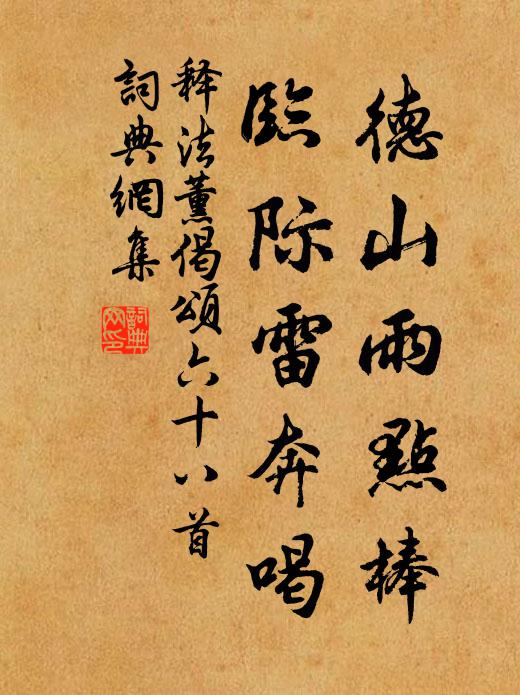 德山雨點棒
臨际雷奔喝
释法薰偈頌六十八首
詞典網集
詞典網印